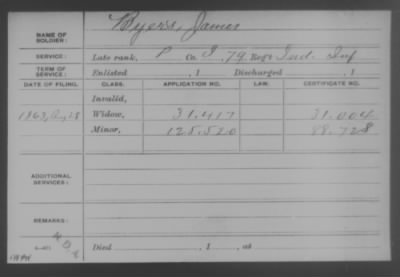 NAME OF SOLDIER: Byers, James
SERVICE: Late rank, P Co. I, 79 Reg't Ind. Inf
TERM OF SERVICE: Enlisted , 1 Discharged , 1
DATE OF FILING. CLASS. APPLICATION NO. LAW. CERTIFICATE NO.
Invalid,
1863, Aug 28 Widow, 31.417 31.004
Minor, 125.520 88.728
ADDITIONAL SERVICES:
REMARKS:
Died , 1 , at